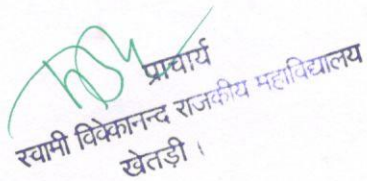 प्राचार्य
स्वामी विवेकानन्द राजकीय महाविद्यालय
खेतड़ी ।